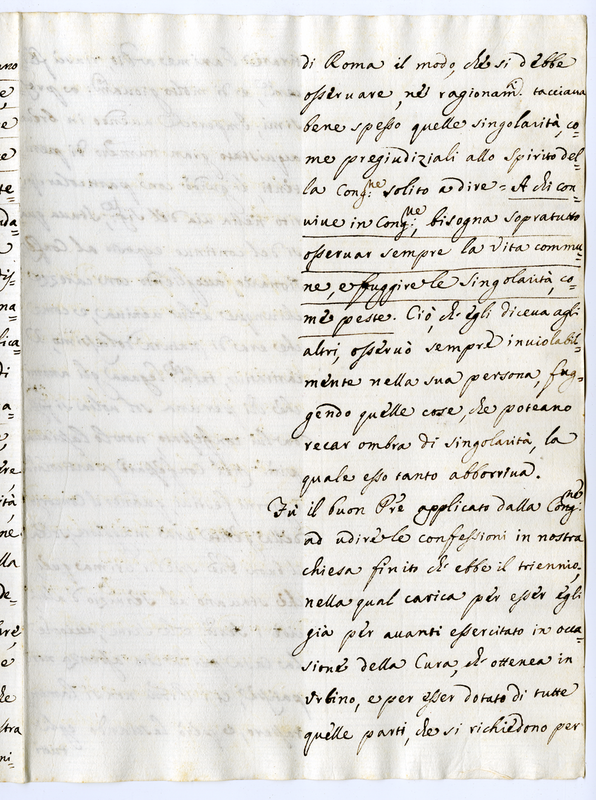 di Roma il modo, che si debbe
osseruare, ne' ragionam.ti tacciaua
bene spesso quelle singolarità, co=
me pregiudiziali allo Spirito del=
la Cong:ne solito a dire = A chi con=
uiue in Cong:ne, bisogna sopratutto
osseruar sempre la Vita commu=
ne, e fuggire le singolarità, co=
me peste. Ciò, ch' egli diceua agli
altri, osseruò sempre inuiolabil=
mente nella sua persona, fug=
gendo quelle cose, che poteano
recar ombra di singolarità, la
quale esso tanto abborriua.
Fu il buon Pre applicato dalla Cong:ne
ad udire le confessioni in nostra
chiesa finito ch' ebbe il triennio,
nella qual carica per esser egli
già per auanti essercitato in occa=
sione della Cura, ch' ottenea in
Urbino, e per esser dotato di tutte
quelle parti, che si richiedono per